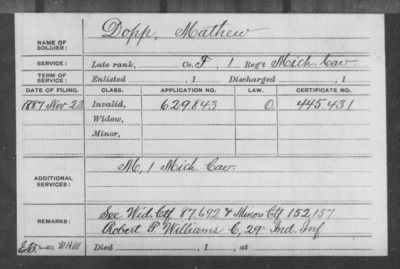 NAME OF SOLDIER: Dopp, Mathew
SERVICE: Late rank, Co. F, 1 Reg't Mich. Cav.
TERM OF SERVICE: Enlisted , 1 Discharged , 1
DATE OF FILING. CLASS. APPLICATION NO. LAW. CERTIFICATE NO.
1887 Nov 23 Invalid, 629.843 O. 445.431
Widow,
Minor,
ADDITIONAL SERVICES: M, 1 Mich Cav.
REMARKS: See Wid. Ctf 87,692 & Minors Ctf 152,157
Robert P. Williams C, 29" Ind. Inf
Died , 1 , at